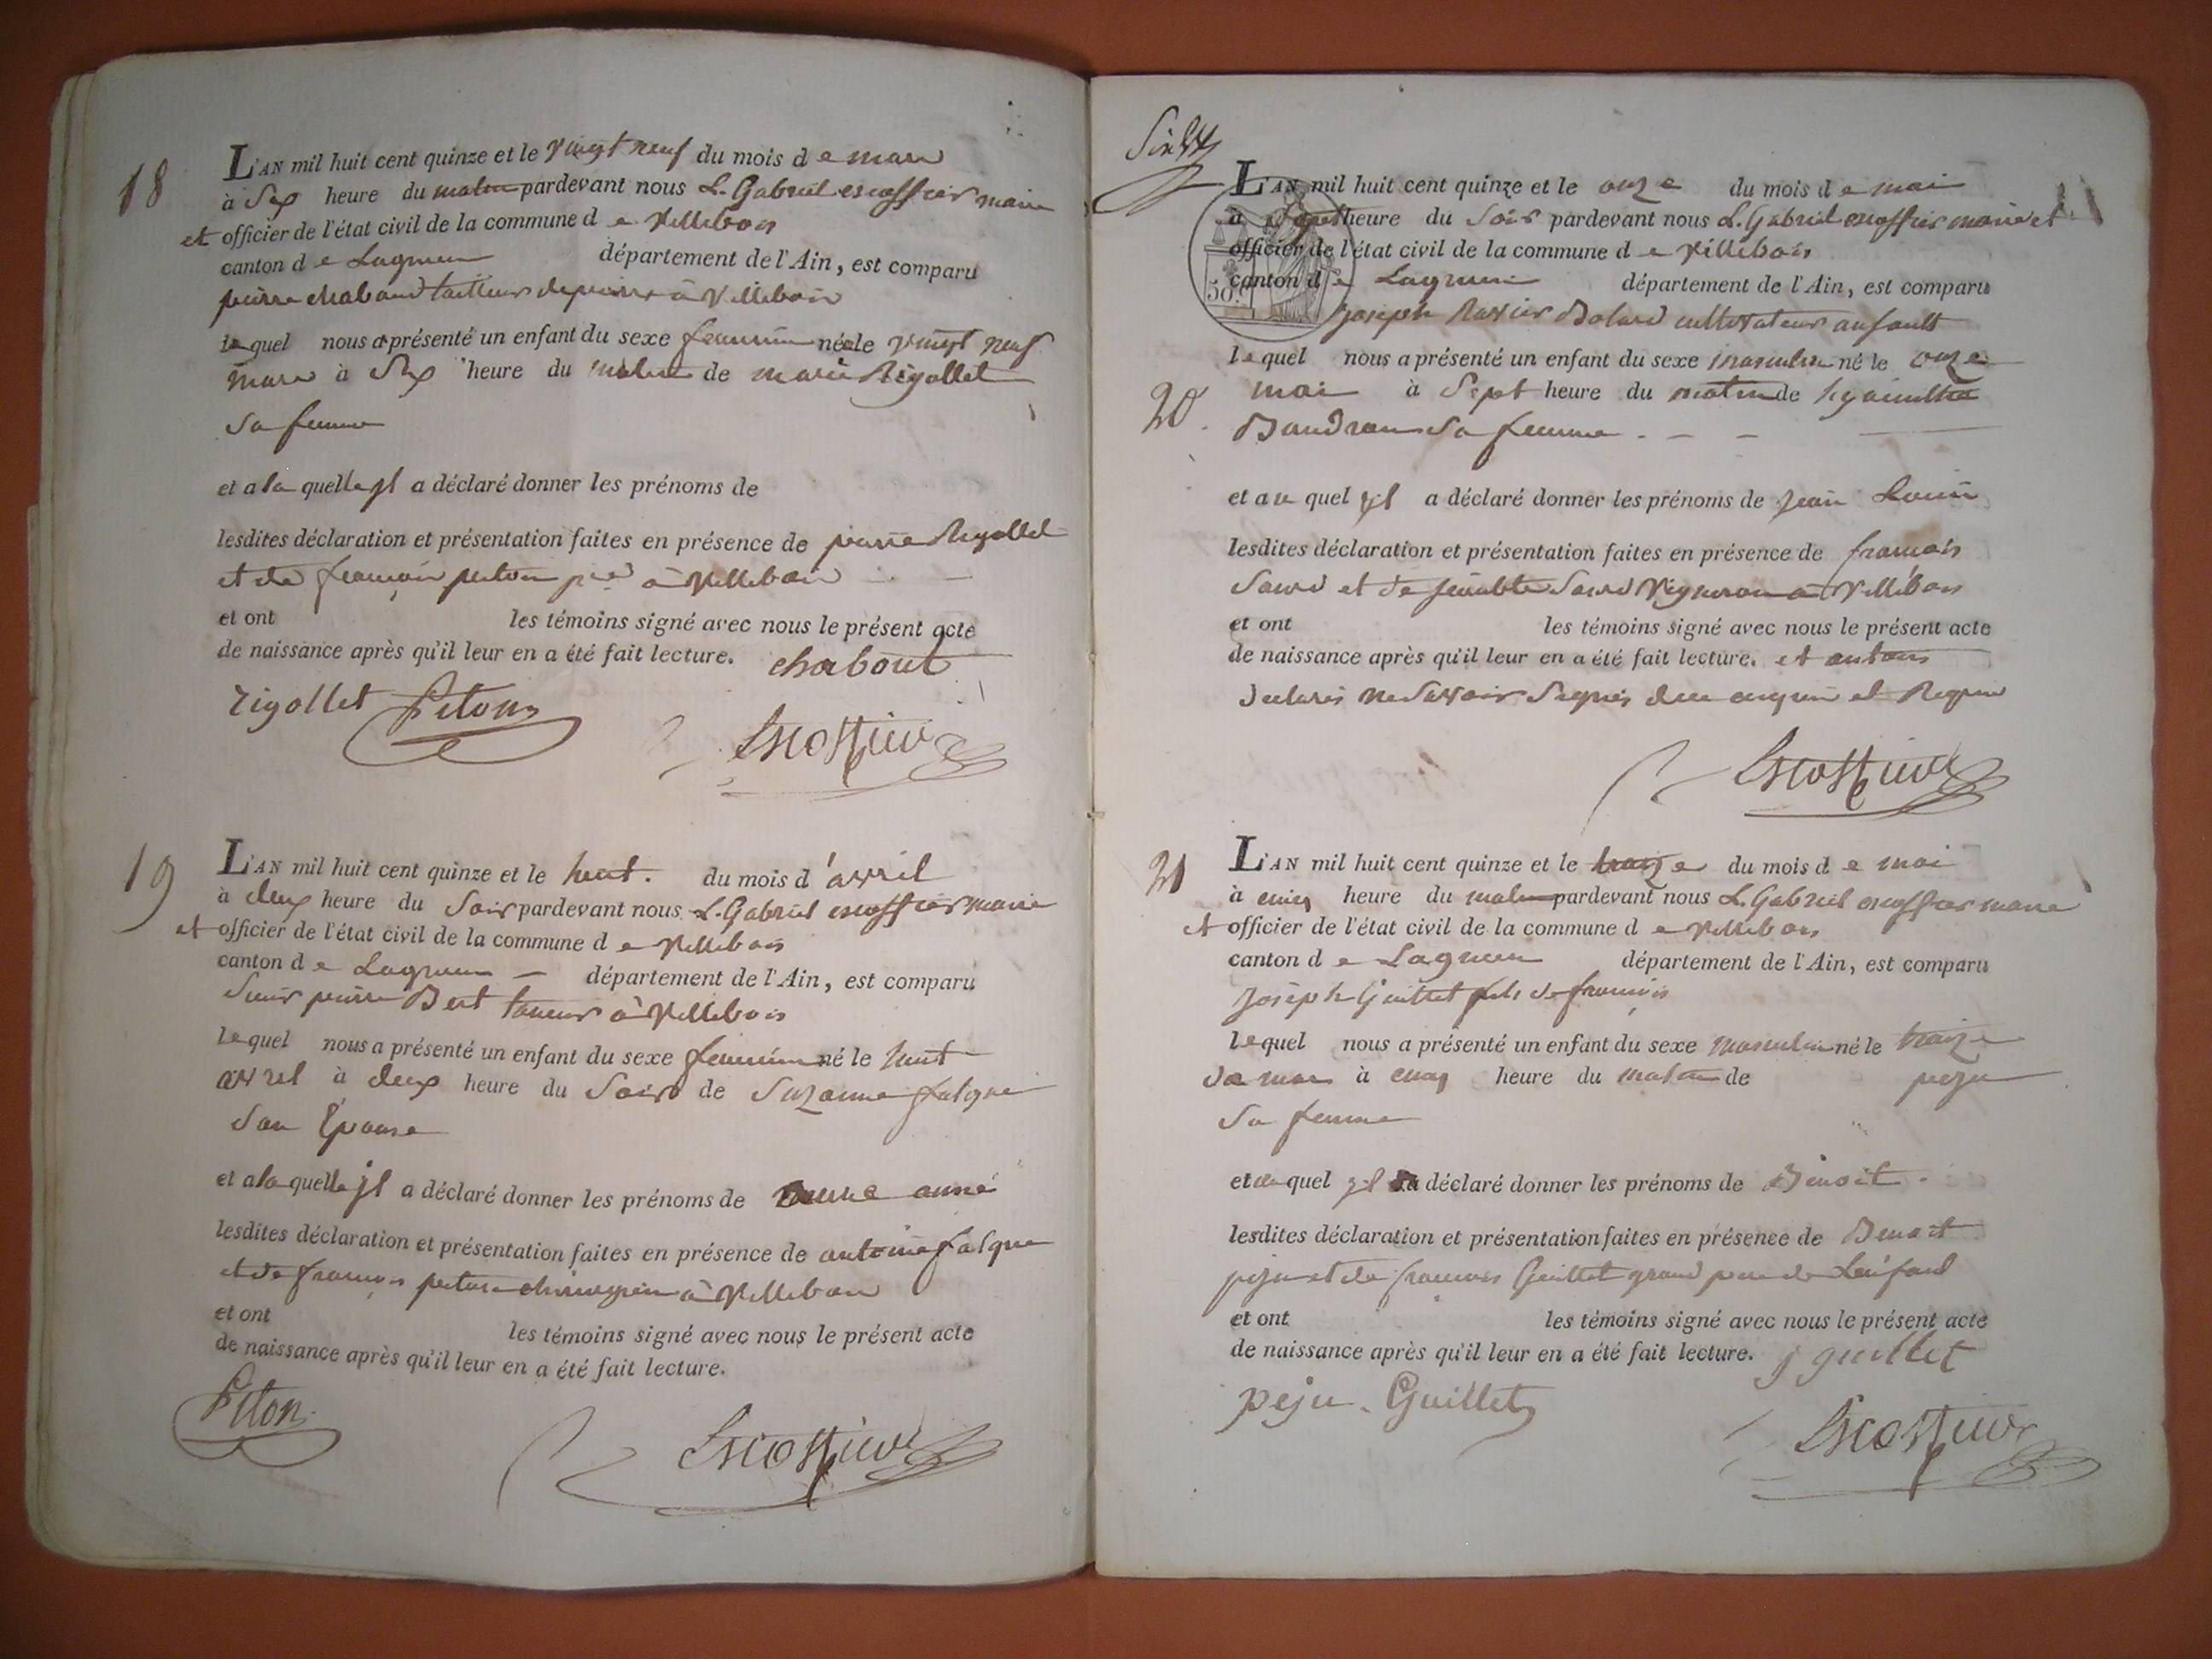 18
L'AN mil huit cent quinze et le vingt neuf du mois de mars
à Six heure du matin pardevant nous L. Gabriel escoffier maire
et officier de l'état civil de la commune de Villebois
canton de Lagnieu département de l'Ain, est comparu
pierre chaboud tailleur de pierre à Villebois
lequel nous a présenté un enfant du sexe feminin née le vingt neuf
mars à Six heure du matin de marie Rigollet
sa femme
et a la quelle jl a déclaré donner les prénoms de
lesdites déclaration et présentation faites en présence de pierre Rigollet
et de françois piton à Villebois
et ont les témoins signé avec nous le présent acte
de naissance après qu'il leur en a été fait lecture. chabout
rigollet Piton
Escoffier
19
L'AN mil huit cent quinze et le huit. du mois d'avril
à deux heure du Soir pardevant nous L. Gabriel escoffier maire
et officier de l'état civil de la commune de Villebois
canton de Lagnieu département de l'Ain, est comparu
Sieur pierre Bert taneur à Villebois
lequel nous a présenté un enfant du sexe feminin né le huit
avril à deux heure du Soir de Suzanne falque
Son Epouse
et a la quelle jl a déclaré donner les prénoms de anne
lesdites déclaration et présentation faites en présence de antoine falque
et de françois piton chirurgien à Villebois
et ont les témoins signé avec nous le présent acte
de naissance après qu'il leur en a été fait lecture.
Piton
Escoffier
11
L'AN mil huit cent quinze et le onze du mois de mai
à Sept heure du Soir pardevant nous L. Gabriel escoffier maire et
officier de l'état civil de la commune de Villebois
canton de Lagnieu département de l'Ain, est comparu
50.
joseph Ravier Bolard cultivateur
lequel nous a présenté un enfant du sexe masculin né le onze
20. mai à Sept heure du matin de hyacinthe
Baudran Sa femme
et au quel jl a déclaré donner les prénoms de jean Louis
lesdites déclaration et présentation faites en présence de françois
et de Vigneron à Villebois
et ont les témoins signé avec nous le présent acte
de naissance après qu'il leur en a été fait lecture. et ont tous
declarés ne Savoir Signer de ce enquis et Requis
Escoffier
21
L'AN mil huit cent quinze et le traize du mois de mai
à cinq heure du matin pardevant nous L. Gabriel escoffier maire
et officier de l'état civil de la commune de Villebois
canton de Lagnieu département de l'Ain, est comparu
Joseph Guillet fils de françois
lequel nous a présenté un enfant du sexe masculin né le traize
de mai à cinq heure du matin de peju
Sa femme
et au quel jl a déclaré donner les prénoms de Benoit.
lesdites déclaration et présentation faites en présence de Benoit
peju et de francois Guillet grand pere de Lenfant
et ont les témoins signé avec nous le présent acte
de naissance après qu'il leur en a été fait lecture. j guillet
peju. Guillet
Escoffier